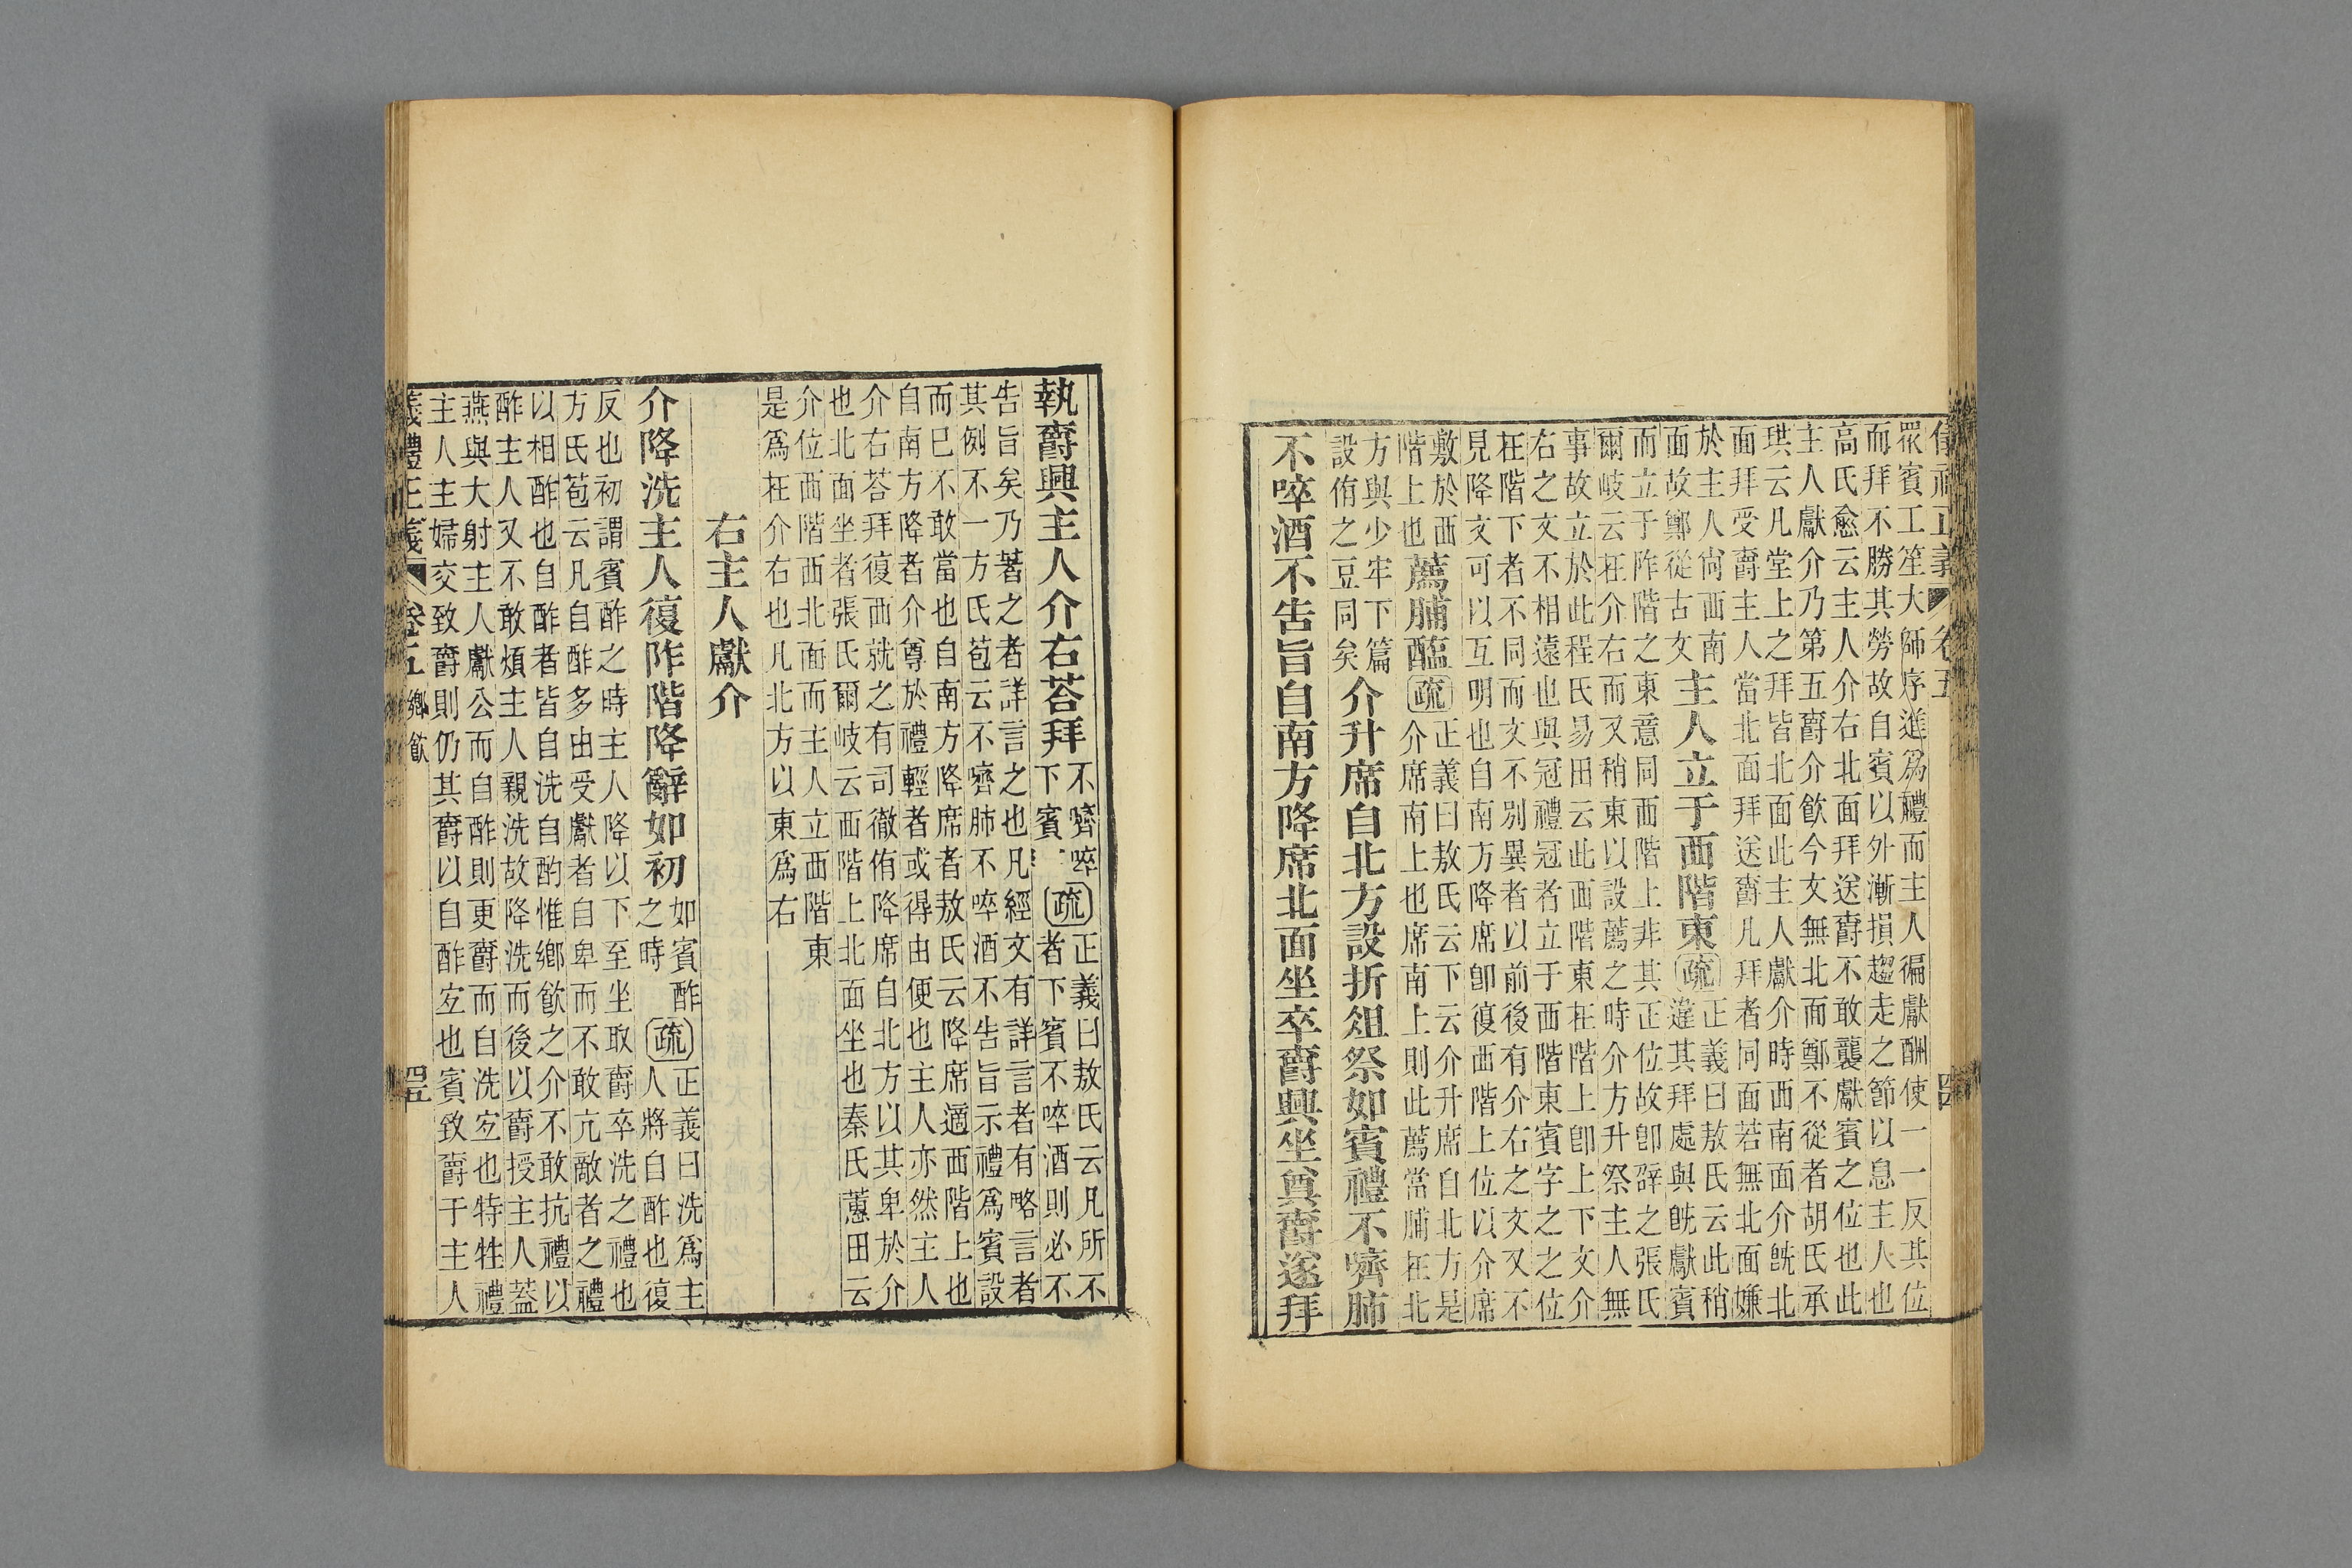 儀禮正義 卷五
眾賓工笙大師序進爲禮而主人徧獻酬使一一反其位
而拜不勝其勞故自賓以外漸損趨走之節以息主人也
高氏愈云主人介右北面拜送爵不敢襲獻賓之位也此
主人獻介乃第五爵介飮今文無北面鄭不從者胡氏承
珙云凡堂上之拜皆北面此主人獻介時西南面介旣北
面拜受爵主人當北面拜送爵凡拜者同面若無北面嫌
於主人尙西南
面故鄭從古文
主人立于西階東
疏
正義曰敖氏云此稍
違其拜處與旣獻賓
而立于阼階之東意同西階上非其正位故卽辟之張氏
爾岐云在介右而又稍東以設薦之時介方升祭主人無
事故立於此程氏易田云此西階東在階上卽上下文介
右之文不相遠也與冠禮冠者立于西階東賓字之之位
在階下者不同而文不別異者以前後有介右之文又不
見降文可以互明也自南方降席卽復西階上位以介席
敷於西
階上也
薦脯醢
疏
正義曰敖氏云下云介升席自北方是
介席南上也席南上則此薦當脯在北
方與少牢下篇
設侑之豆同矣
介升席自北方設折俎祭如賓禮不嚌肺
不啐酒不告旨自南方降席北面坐卒爵興坐奠爵遂拜
執爵興主人介右荅拜
不嚌啐
下賓
疏
正義曰敖氏云凡所不
者下賓不啐酒則必不
告旨矣乃著之者詳言之也凡經文有詳言者有略言者
其例不一方氏苞云不嚌肺不啐酒不告旨示禮爲賓設
而已不敢當也自南方降席者敖氏云降席適西階上也
自南方降者介尊於禮輕者或得由便也主人亦然主人
介右荅拜復西就之有司徹侑降席自北方以其卑於介
也北面坐者張氏爾岐云西階上北面坐也秦氏蕙田云
介位西階西北面而主人立西階東
是爲在介右也凡北方以東爲右
右主人獻介
介降洗主人復阼階降辭如初
如賓酢
之時
疏
正義曰洗爲主
人將自酢也復
反也初謂賓酢之時主人降以下至坐取爵卒洗之禮也
方氏苞云凡自酢多由受獻者自卑而不敢亢敵者之禮
以相酢也自酢者皆自洗自酌惟鄉飮之介不敢抗禮以
酢主人又不敢煩主人親洗故降洗而後以爵授主人蓋
燕與大射主人獻公而自酢則更爵而自洗宐也特牲禮
主人主婦交致爵則仍其爵以自酢宐也賓致爵于主人
儀禮正義 卷五 鄉飮 四五